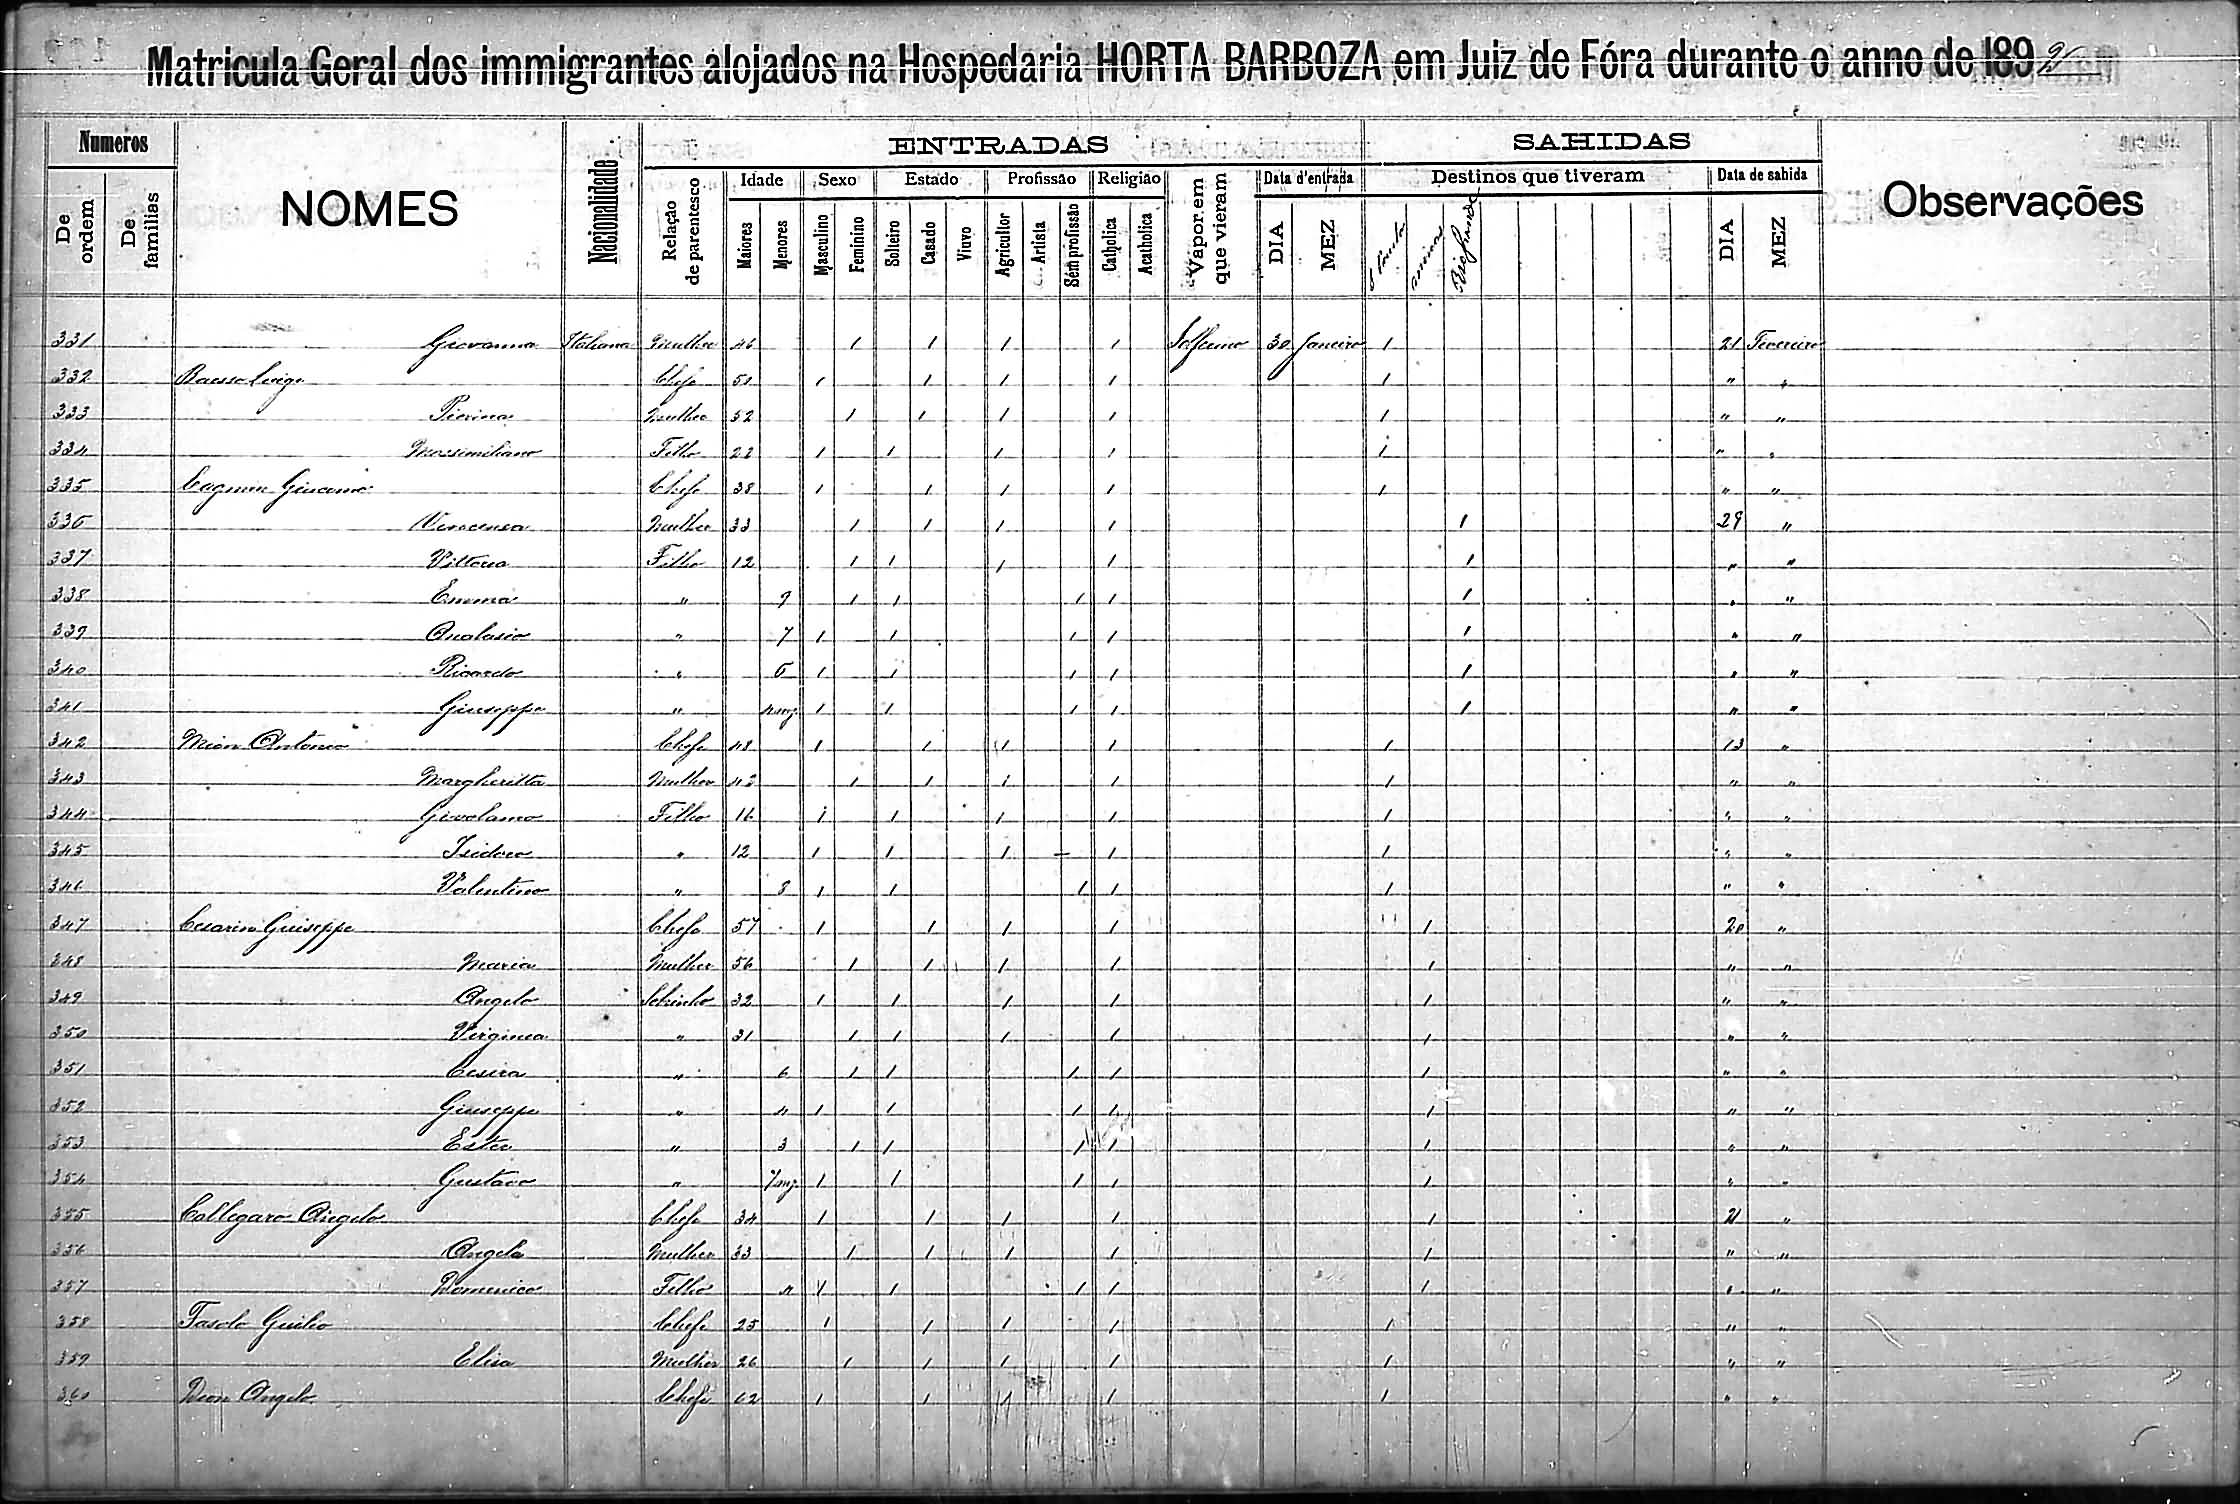 Matricula Geral dos immigrantes alojados na Hospedaria HORTA BARBOZA em Juiz de Fóra durante o anno de 189
Numeros ENTRADAS SAHIDAS
De ordem De familias NOMES Nacionalidade Relação de parentesco Idade Sexo Estado Profissão Religião Vapor em que vieram Data d'entrada Destinos que tiveram Data de sahida Observações
Maiores Menores Masculino Feminino Solteiro Casado Viuvo Agricultor Artista Sem profissão Catholica Acatholica DIA MEZ Minas Rio Grande DIA MEZ
331 Giovanna Italiana Mulher 46 1 1 1 1 Solferino 30 Janeiro 1 21 Fevereiro
332 Luigi Chefe 50 1 1 1 1 1 " "
333 Pierina Mulher 52 1 1 1 1 1 " "
334 Massimiliano Filho 22 1 1 1 1 1 " "
335 Giacomo Chefe 38 1 1 1 1 1 " "
336 Vincensa Mulher 33 1 1 1 1 1 29 "
337 Vittoria Filho 12 1 1 1 1 1 " "
338 Emma " 9 1 1 1 1 1 " "
339 " 7 1 1 1 1 1 " "
340 Ricardo " 6 1 1 1 1 1 " "
341 Giuseppe " 1 1 1 1 1 " "
342 Mion Antonio Chefe 48 1 1 1 1 1 13 "
343 Margheritta Mulher 42 1 1 1 1 1 " "
344 Girolamo Filho 16 1 1 1 1 1 " "
345 Isidoro " 12 1 1 1 – 1 1 " "
346 Valentino " 8 1 1 1 1 1 " "
347 Cesarin Giuseppe Chefe 57 1 1 1 1 1 20 "
348 Maria Mulher 56 1 1 1 1 1 " "
349 Angelo Sobrinho 32 1 1 1 1 1 " "
350 Virginia " 31 1 1 1 1 1 " "
351 Cesira " 6 1 1 1 1 1 " "
352 Giuseppe " 4 1 1 1 1 1 " "
353 Ester " 3 1 1 1 1 1 " "
354 Gustavo " 1 1 1 1 1 " "
355 Callegaro Angelo Chefe 34 1 1 1 1 1 21 "
356 Angela Mulher 33 1 1 1 1 1 " "
357 Domenico Filho 4 1 1 1 1 1 " "
358 Fasolo Giulio Chefe 25 1 1 1 1 1 " "
359 Elisa Mulher 26 1 1 1 1 1 " "
360 Angelo Chefe 62 1 1 1 1 1 " "